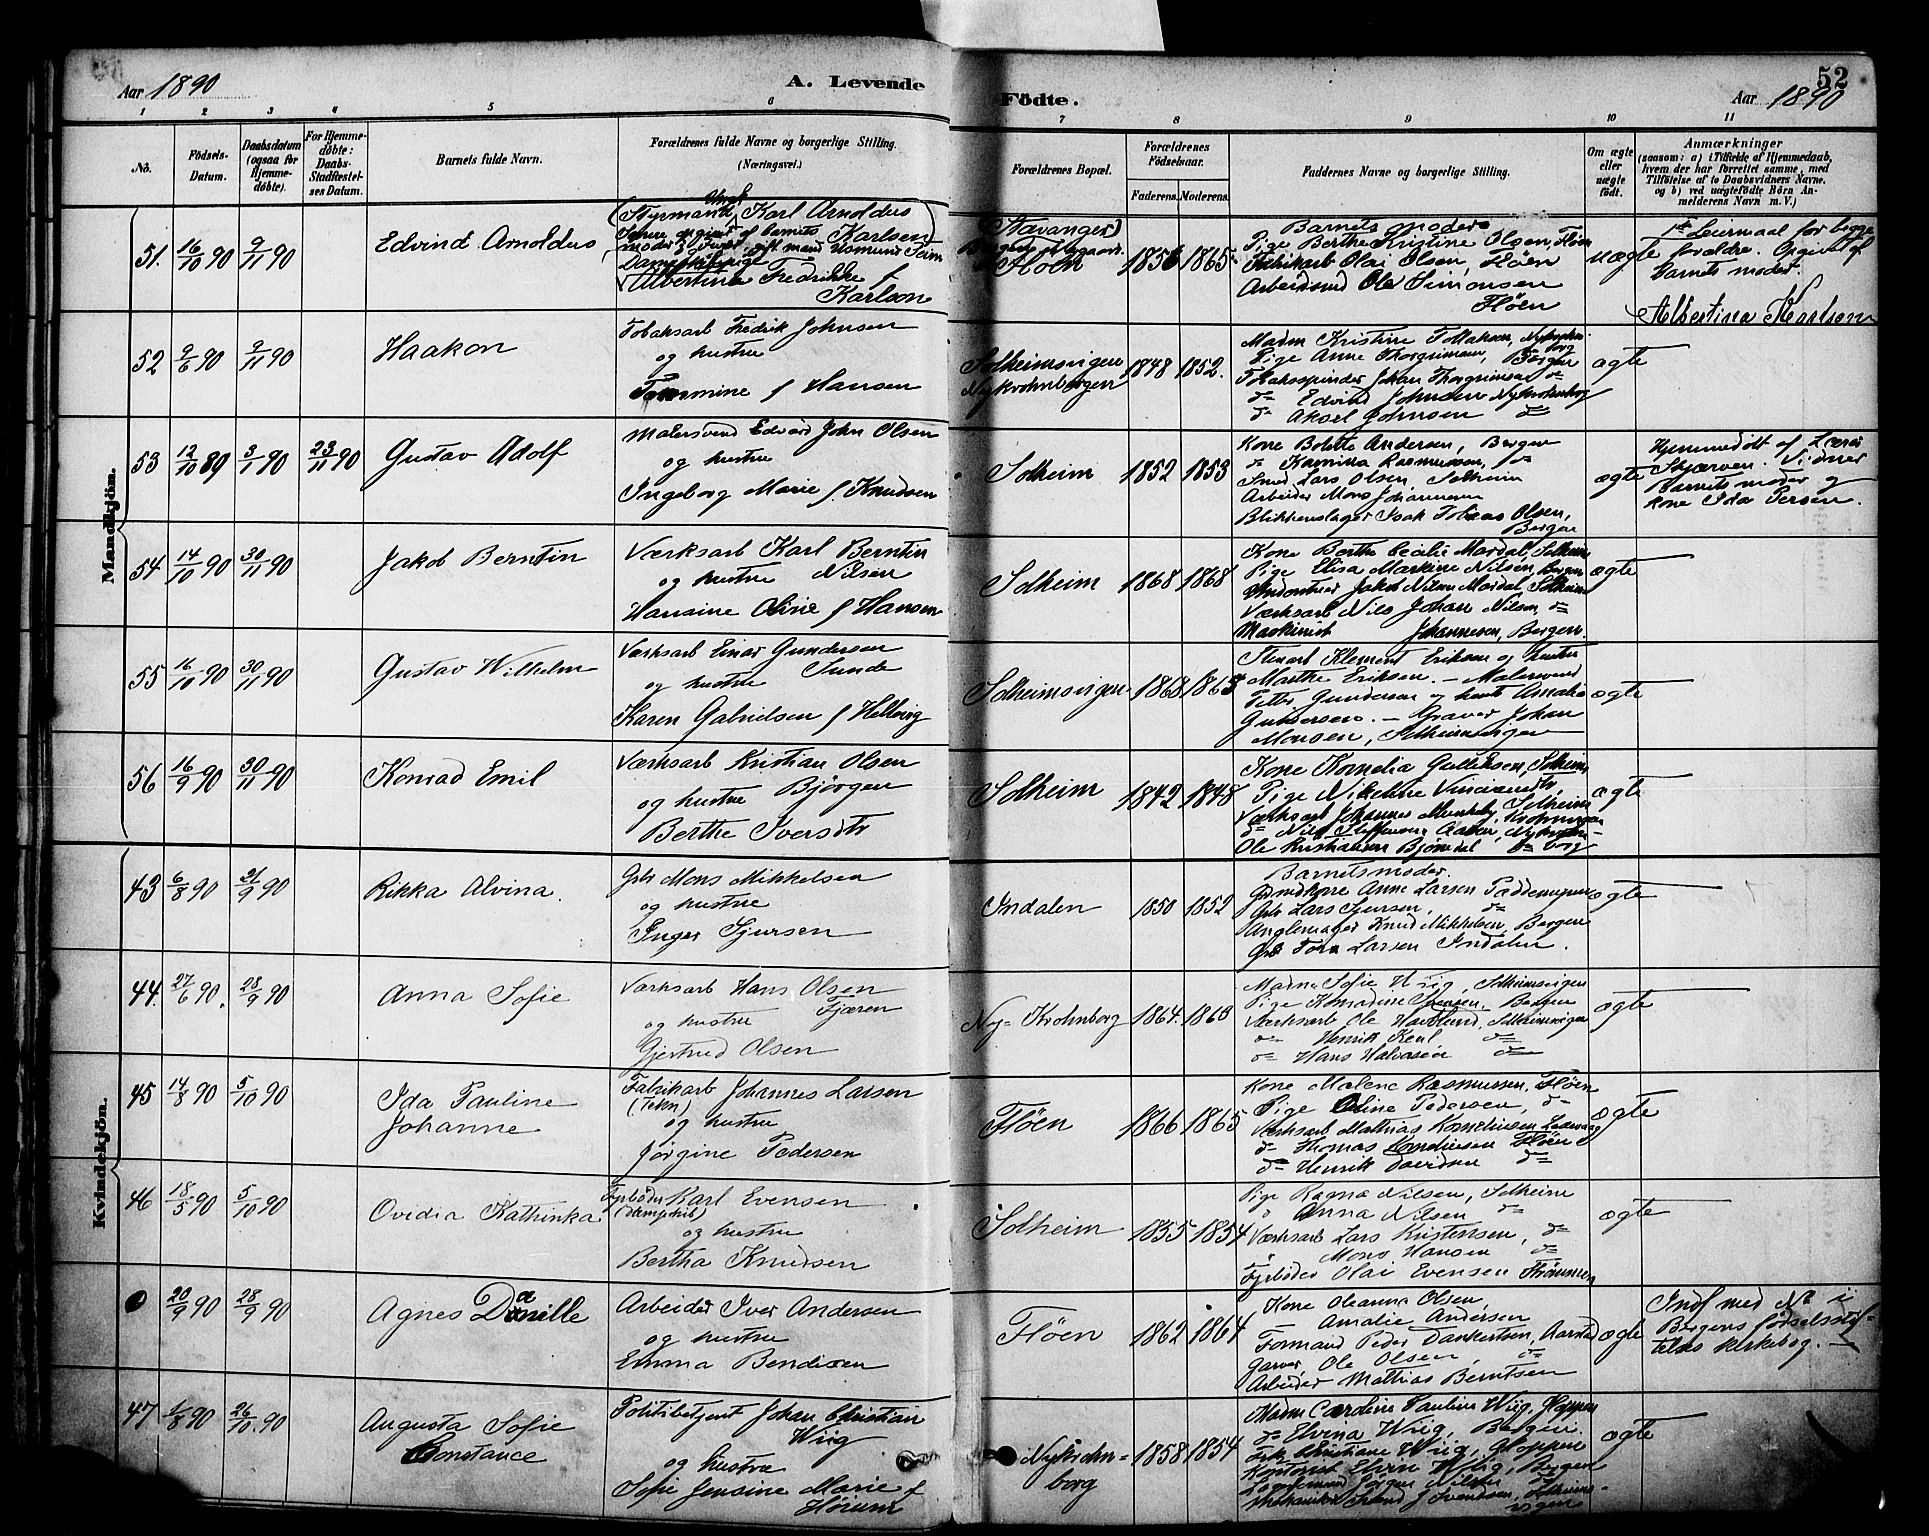 52
Aar 1890
A. Levende
Födte.
Aar 1890
1 2 3 4 5 6 7 8 9 10 11
No.
Födsels-Datum.
Daabsdatum (ogsaa for Hjemme-døbte).
For Hjemme-døbte: Daabs-Stadfæstel-ses Datum.
Barnets fulde Navn.
Forældrenes fulde Navne og borgerlige Stilling.
(Næringsvei.)
Forældrenes Bopæl.
Forældrenes Födselsaar.
Faderens. Moderens.
Faddernes Navne og borgerlige Stilling.
Om ægte eller uægte födt.
Anmærkninger
(saasom: a) i Tilfælde af Hjemmedaab,
hvem der har forrettet samme, med
Tilföielse af to Daabsvidners Navne,
og b) ved uægtefödte Börn An-
melderens Navn m.V.)
Mandkjön.
51. 16/10 90 9/11 90
Edvind Arnoldus
Styrmand Karl Arnoldus
Karlsen
Albertina Fredrikke f
Karlson
Stavanger
Fløen
1856 1865
Barnets moder
Pige Berthe Kristine Olsen, Fløen
Fabrikarb Olai Olsen, Fløen
Arbeidsmd Ole Simonsen
Fløen
uægte
1ste Leiermaal for begge
forældre. Opgivet af
barnets moder
Albertina Karlson
52 9/6 90 9/11 90
Haakon
Tobaksarb Fredrik Johnsen
og hustru
f Hansen
Solheimsvigen
Nykrohnborgen
1848 1852.
Madm Kristine Tollaksen,
Pige Anne Thorgrimsen, Bergen
Tobaksspinder Johan Thorgrimsen do
do Edvind Johnsen Nykrohnborg
do Aksel Johnsen do
ægte
53 12/10 89 3/1 90 23/11 90
Gustav Adolf
Malersvend Edvard John Olsen
og hustru
Ingeborg Marie f Knudsen
Solheim
1852 1853
Kone Bolette Andersen, Bergen
do Kamilla Rasmussen, do
Smed Lars Olsen, Solheim
Arbeider Mons Johannesen
Blikkenslager Isak Tobias Olsen,
Bergen
ægte
Hjemmedøbt af Lærer
Skjerven. Vidner
Barnets moder og
kone Ida Persen.
54 14/10 90 30/11 90
Jakob Berntin
Værksarb Karl Berntin
og hustru Nilsen
Hansine Oline f Hansen
Solheim
1868 1868
Kone Berthe Cecilie Mardal, Solheim
Pige Elisa Markine Nilsen, Bergen
Jakob Nilsen Mardal Solheim
Værksarb Nils Johan Nilsen, do
Maskinist Johannesen, Bergen.
ægte
55 16/10 90 30/11 90
Gustav Wilhelm
Værksarb Einar Gundersen
og hustru Sunde
Karen Gabrielsen f Hellvig
Solheimsvigen
1868 1865
Stuart Klement Eriksen og hustru
Marthe Eriksen. — Malersvend
Petter Gundersen og hustr Amalie
Gundersen. — Graver Johan
Monsen, Solheimsvigen
ægte
56 16/9 90 30/11 90
Konrad Emil
Værksarb Kristian Olsen
og hustru Bjørgen
Berthe Iversdtr
Solheim
1842 1848
Kone Kornelia Gulliksen, Solheim
Pige Nikoline
Værksarb Johannes
do Nils Steffensen
Ole Kristiansen Bjørndal, do borg
ægte
Kvindekjön.
43 6/8 90 21/9 90
Rikka Alvina.
Gbr Mons Mikkelsen
og hustru
Inger Sjursen
Indalen
1850 1852
Barnets moder.
Gmdkone Anne Larsen
Gbr Lars Sjursen, do
Anglemager Knud Mikkelsen, Bergen
Gbr Tora Larsen Indalen.
ægte
44. 27/6 90. 28/9 90
Anna Sofie
Værksarb Hans Olsen
og hustru Fjæren
Gjertrud Olsen
Ny-Krohnborg
1864. 1863
Madm Sofie Wiig, Solheimsvigen
Pige Konradine Svensen, Bergen
Værksarb Ole Havelund, Solheimsvigen
do Henrik Keul do
do Hans Halvorsen do
ægte
45 14/8 90 5/10 90
Ida Pauline
Johanne
Fabrikarb Johannes Larsen
(Tekn)
og hustru
Jørgine Pedersen
Fløen
1866 1865
Kone Malene Rasmussen, Fløen
Pige Oline Pedersen, do
Værksarb Mathias Kornelinsen
do Thomas Kornelinsen Fløen
do Henrik Davidsen do
ægte
46 18/5 90 5/10 90
Ovidia Kathinka
Fyrbøder Karl Evensen
(Dampskib)
og hustru
Bertha Knudsen
Solheim
1855 1854
Pige Ragna Nilsen, Solheim
" Anna Nilsen do
Værksarb Lars Kristensen, do
" Mons Hansen do
Fyrbøder Olai Evensen
ægte
20/9 90 28/9 90
Agnes Danille
Arbeider Iver Andersen
og hustru
Emma Bendixen
Fløen
1862 1864
Kone Oleanna Olsen,
" Amalie Andersen
Formand Peder Dankertsen, Aarstad
Garver Ole Olsen, do
Arbeider Mathias Berntsen
ægte
Indf med No i
Bergens fødselsstif-
telses kirkebog. —
47 1/8 90 26/10. 90
Augusta Sofie
Constance
Politibetjent Johan Christian
Wiig
og hustru
Sofie Jensine Marie f
Nykrohn-
borg
1858 1854
Madm Caroline Pauline Wiig, Gloppen
do Elvina Wiig, Bergen.
Frk Christiane Wiig, Gloppen
Kontorist Edvin Wiig, Bergen
Jørgen Nilsen
J Svendsen, Solheims-
vigen
ægte